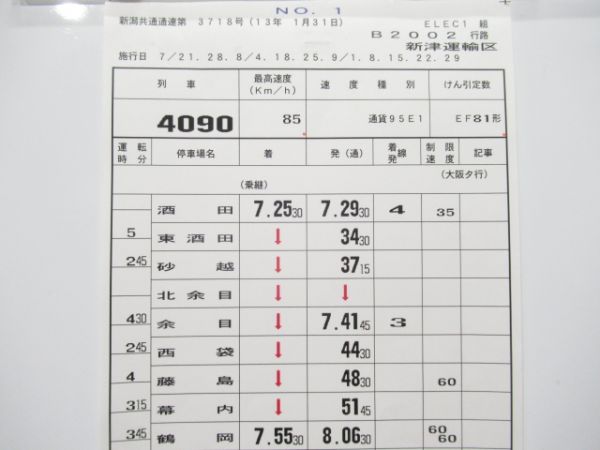 NO. 1
新潟共通通達第 3718号(13年 1月31日) ELEC1 組
B2002 行路
新津運輸区
施行日 7/21. 28. 8/4. 18. 25. 9/1. 8. 15. 22. 29
列車 最高速度(Km/h) 速度種別 けん引定数
4090 85 通貨95E1 EF81形
運転時分 停車場名 着 発(通) 着発線 制限速度 記事
(乗継) (大阪タ行)
酒田 7.25 30 7.29 30 4 35
5 東酒田 ↓ 34 30
2 45 砂越 ↓ 37 15
北余目 ↓ ↓
4 30 余目 ↓ 7.41 45 3
2 45 西袋 ↓ 44 30
4 藤島 ↓ 48 30 60
3 15 幕内 ↓ 51 45
3 45 鶴岡 7.55 30 8.06 30 60 60